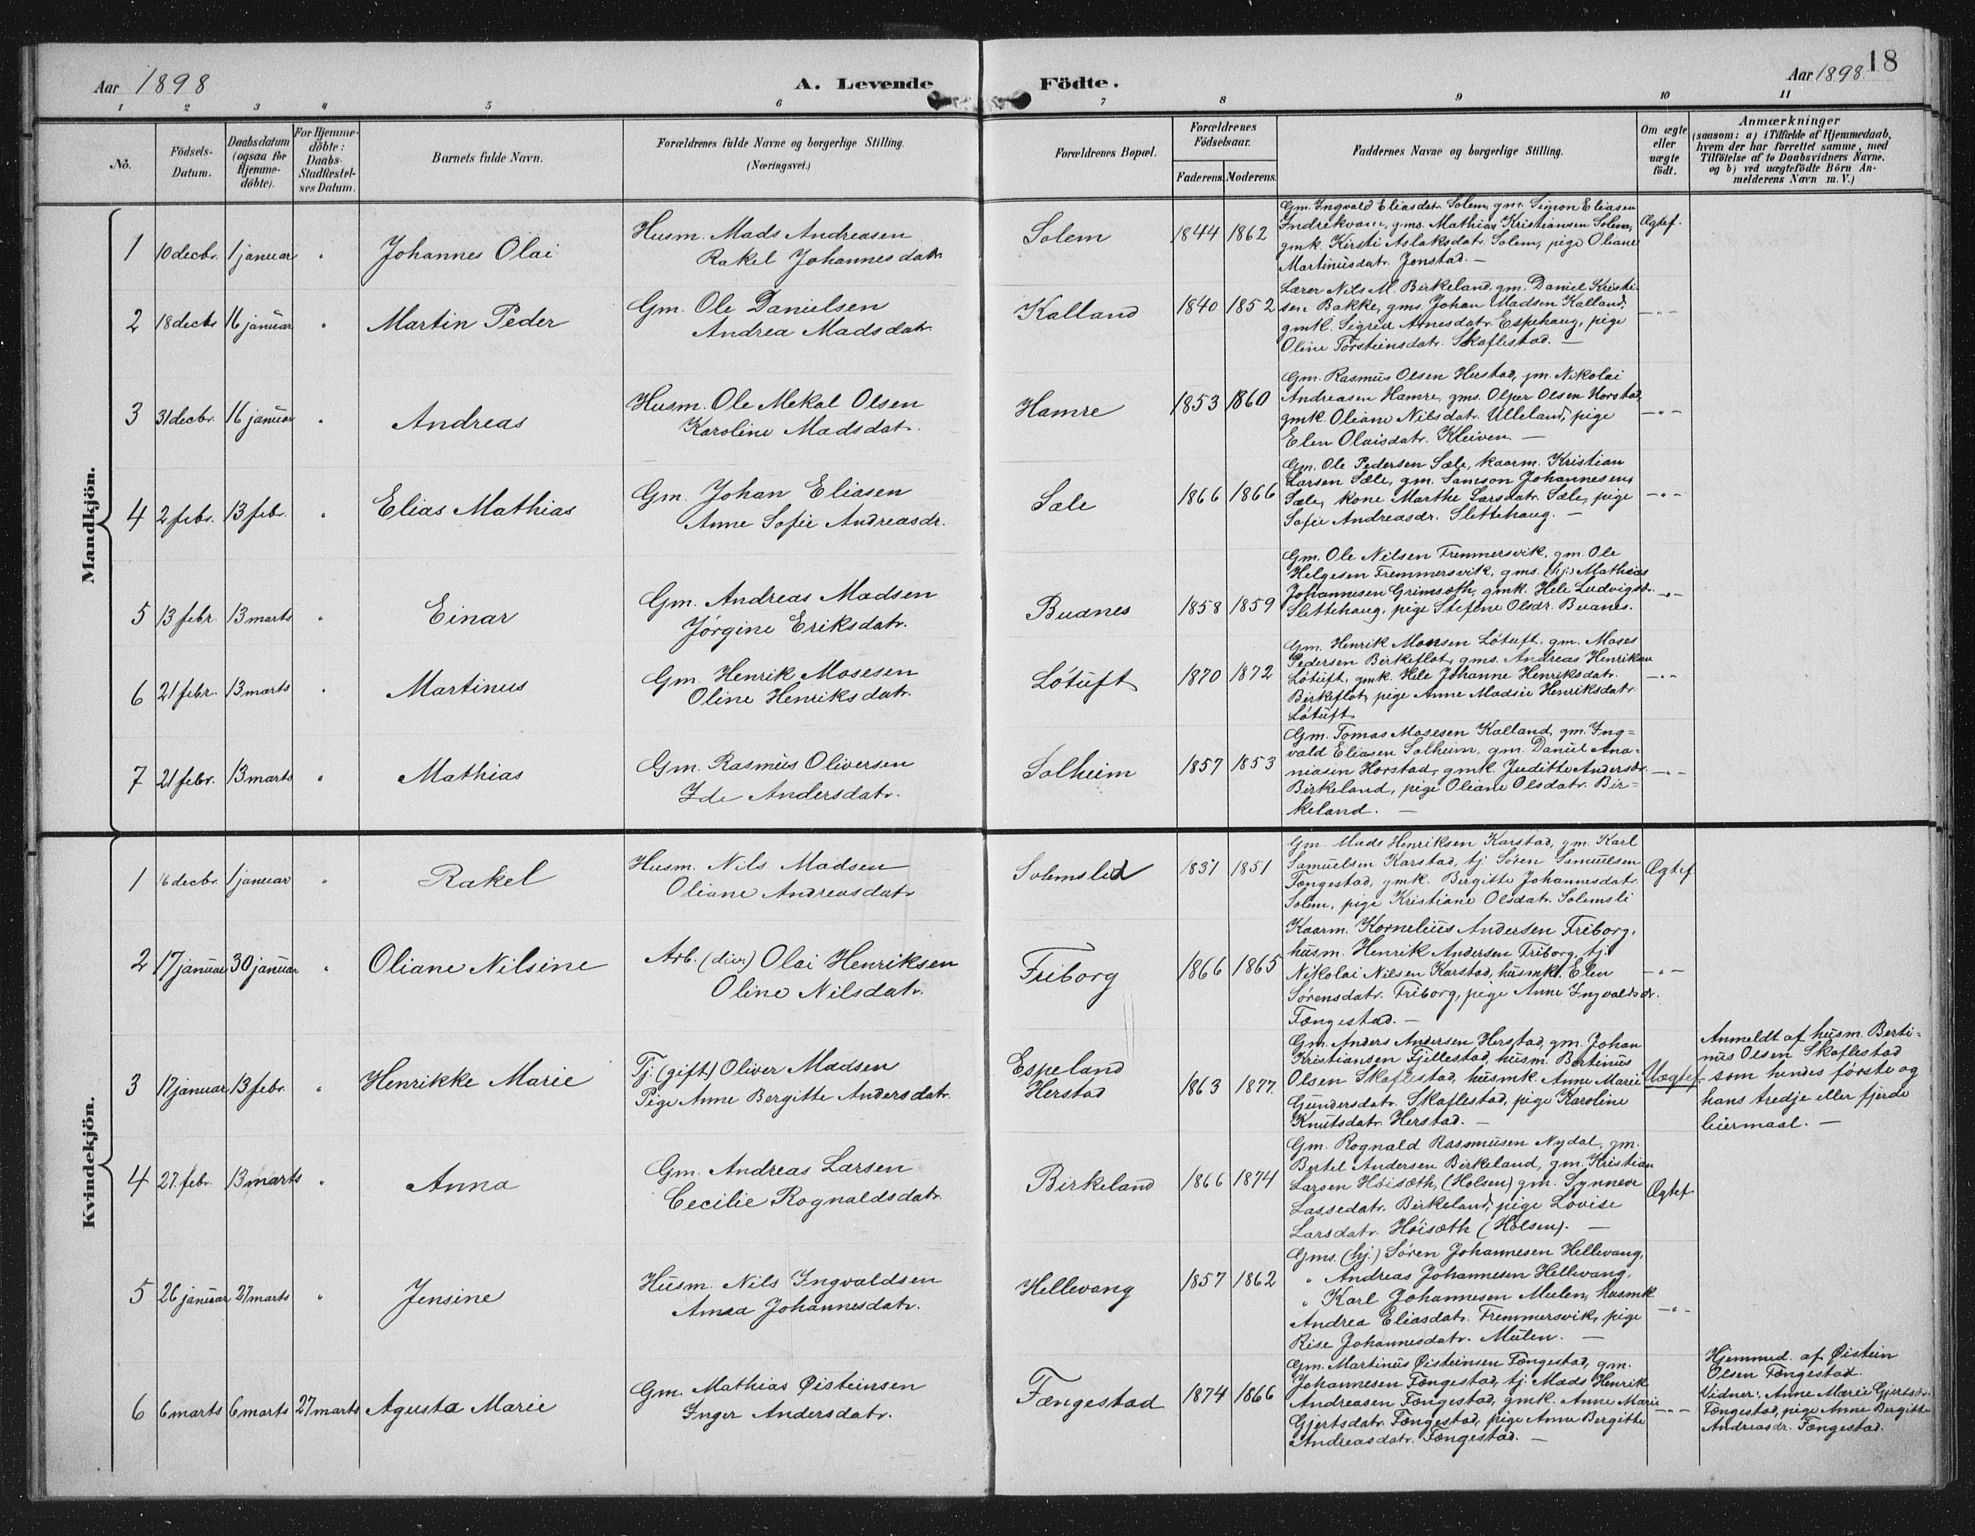 Aar 1898 A. Levende Födte. Aar 1898. 18
1 2 3 4 5 6 7 8 9 10 11
No.
Födsels-
Datum.
Daabsdatum
(ogsaa for
Hjemme-
döbte).
For Hjemme-
döbte:
Daabs-
Stadfæstel-
ses Datum.
Barnets fulde Navn.
Forældrenes fulde Navne og borgerlige Stilling.
(Næringsvei.)
Forældrenes Bopæl.
Forældrenes
Födselsaar.
Faderens. Moderens.
Faddernes Navne og borgerlige Stilling.
Om ægte
eller
uægte
födt.
Anmærkninger
(saasom: a) i Tilfælde af Hjemmedaab,
hvem der har forrettet samme, med
Tilföielse af to Daabsvidners Navne.
og b) ved uægtefödte Börn An-
melderens Navn m. V.)
Mandkjön.
1 10 decbr. 1 januar " Johannes Olai
Husm. Mads Andreasen
Rakel Johannesdatr.
Solem 1844 1862
Gm. Ingvald Eliasdatr. Solem, gm. Simon Eliasen
Indrekvam, gms. Mathias Kristiansen Solem,
gmk. Kirsti Aslaksdatr. Solem, pige Oliane
Martinusdatr. Jonstad. —
Ægtef.
2 18 decbr. 16 januar " Martin Peder
Gm. Ole Danielsen
Andrea Madsdatr.
Kalland 1840 1852
Lærer Nils M. Birkeland, gm. Daniel Kristi-
sen Bakke, gms. Johan Madsen Kalland,
gmk. Sigrid Arnesdatr. Espehaug, pige
Oline Torsteinsdatr. Skaflestad. —
—"—
3 31 decbr. 16 januar " Andreas
Husm. Ole Mekal Olsen
Karoline Madsdatr.
Hamre 1853 1860
Gm. Rasmus Olsen Herstad, gm. Nikolai
Andreasen Hamre, gms. Olper Olsen Horstad,
gmk. Oliane Nilsdatr. Ulleland, pige
Elen Olaisdatr. Kleiven. —
—"—
4 2 febr. 13 febr. " Elias Mathias
Gm. Johan Eliasen
Anne Sofie Andreasdr.
Sæle 1866 1866
Gm. Ole Pedersen Sæle, kaarm. Kristian
Larsen Sæle, gm. Samson Johannesen
Sæle, kone Marthe Larsdatr. Sæle, pige
Sofie Andreasdr. Slettehaug. —
—"—
5 13 febr. 13 marts " Einar
Gm. Andreas Madsen
Jørgine Eriksdatr.
Buanes 1858 1859
Gm. Ole Nilsen Fremmersvik, gm. Ole
Helgesen Fremmersvik, gms. (hj.) Mathias
Johannesen Grimsæth, gmk. Hele Ludvigsdr.
Slettehaug, pige Stefine Olsdr. Buanes.
—"—
6 21 febr. 13 marts " Martinus
Gm. Henrik Mosesen
Oline Henriksdatr.
Løtuft 1870 1872
Gm. Henrik Monsen Løtuft, gm. Moses
Pedersen Birkeflot, gms. Andreas Henriksen
Løtuft, gmk. Hele Johanne Henriksdatr.
Birkeflot, pige Anne Madsie Henriksdatr.
Løtuft
—"—
7 21 febr. 13 marts " Mathias
Gm. Rasmus Oliversen
Ide Andersdatr.
Solheim 1857 1853
Gm. Tomas Mosesen Kalland, gm. Ing-
vald Eliasen Solheim, gm. Daniel Ana-
niasen Horstad, gmk. Juditte Andersdr.
Birkeland, pige Oliane Olsdatr. Bir-
keland. —
—"—
Kvindekjön.
1 16 decbr. 1 januar " Rakel
Husm. Nils Madsen
Oliane Andreasdatr.
Solemslid 1851 1851
Gm. Mads Henriksen Karstad, gm. Karl
Samuelsen Karstad, tj. Søren Samuelsen
Fængestad, gmk. Bergitte Johannesdatr.
Solem, pige Kristiane Olsdatr. Solemsli
Ægtef
2 17 januar 30 januar " Oliane Nilsine
Arb. (div.) Olai Henriksen
Oline Nilsdatr.
Friborg 1866 1865
Kaarm. Kornelius Andersen Friborg,
husm. Henrik Andersen Friborg, tj.
Nikolai Nilsen Karstad, husmk. Elen
Sørensdatr. Friborg, pige Anne Ingvaldsdr.
Fængestad. —
—"—
3 17 januar 13 febr. " Henrikke Marie
Tj. (gift) Oliver Madsen
Pige Anne Bergitte Andersdatr.
Espeland
Herstad 1863 1877.
Gm. Anders Andersen Herstad, gm. Johan
Kristiansen Fjellestad, husm. Bertinus
Olsen Skaflestad, husmk. Anne Marie
Gundersdatr. Skaflestad, pige Karoline
Knutsdatr. Herstad. —
Uægtef.
Anmeldt af husm. Berti-
nus Olsen Skaflestad
som hendes første og
hans tredje eller fjerde
leiermaal. —
4 27. febr. 13 marts " Anna
Gm. Andreas Larsen
Cecilie Rognaldsdatr.
Birkeland 1866 1874
Gm. Rognald Rasmusen Nydal, gm.
Bertel Andersen Birkeland, gm. Kristian
Larsen Høisæth, (Holsen) gm. Synneve
Lassedatr. Birkeland, pige Lovise
Larsdatr. Høisæth (Holsen). —
Ægtef.
5 26 januar 27 marts " Jensine
Husm. Nils Ingvaldsen
Anna Johannesdatr.
Hellevang 1857 1862
Gms. (hj.) Søren Johannesen Hellevang,
" Andreas Johannesen Hellevang,
" Karl Johannesen Mulen, husmk.
Andrea Eliasdatr. Fremmersvik, pige
Rise Johannesdatr. Mulen. —
—"—
6 6 marts 6 marts 27 marts Agusta Marie
Gm. Mathias Øisteinsen
Inger Andersdatr.
Fængestad 1874 1866
Gm. Martinus Øisteinsen Fængestad, gm.
Johannesen Fængestad, tj. Mads Henrik
Andreasen Fængestad, gmk. Anne Marie
Gjertsdatr. Fængestad, pige Anne Bergitte
Andreasdatr. Fængestad. —
—"—
Hjemmed. af Øistein
Olsen Fængestad.
Vidner: Anne Marie Gjertsdr.
Fængestad, pige Anne Bergitte
Andreasdr. Fængestad.